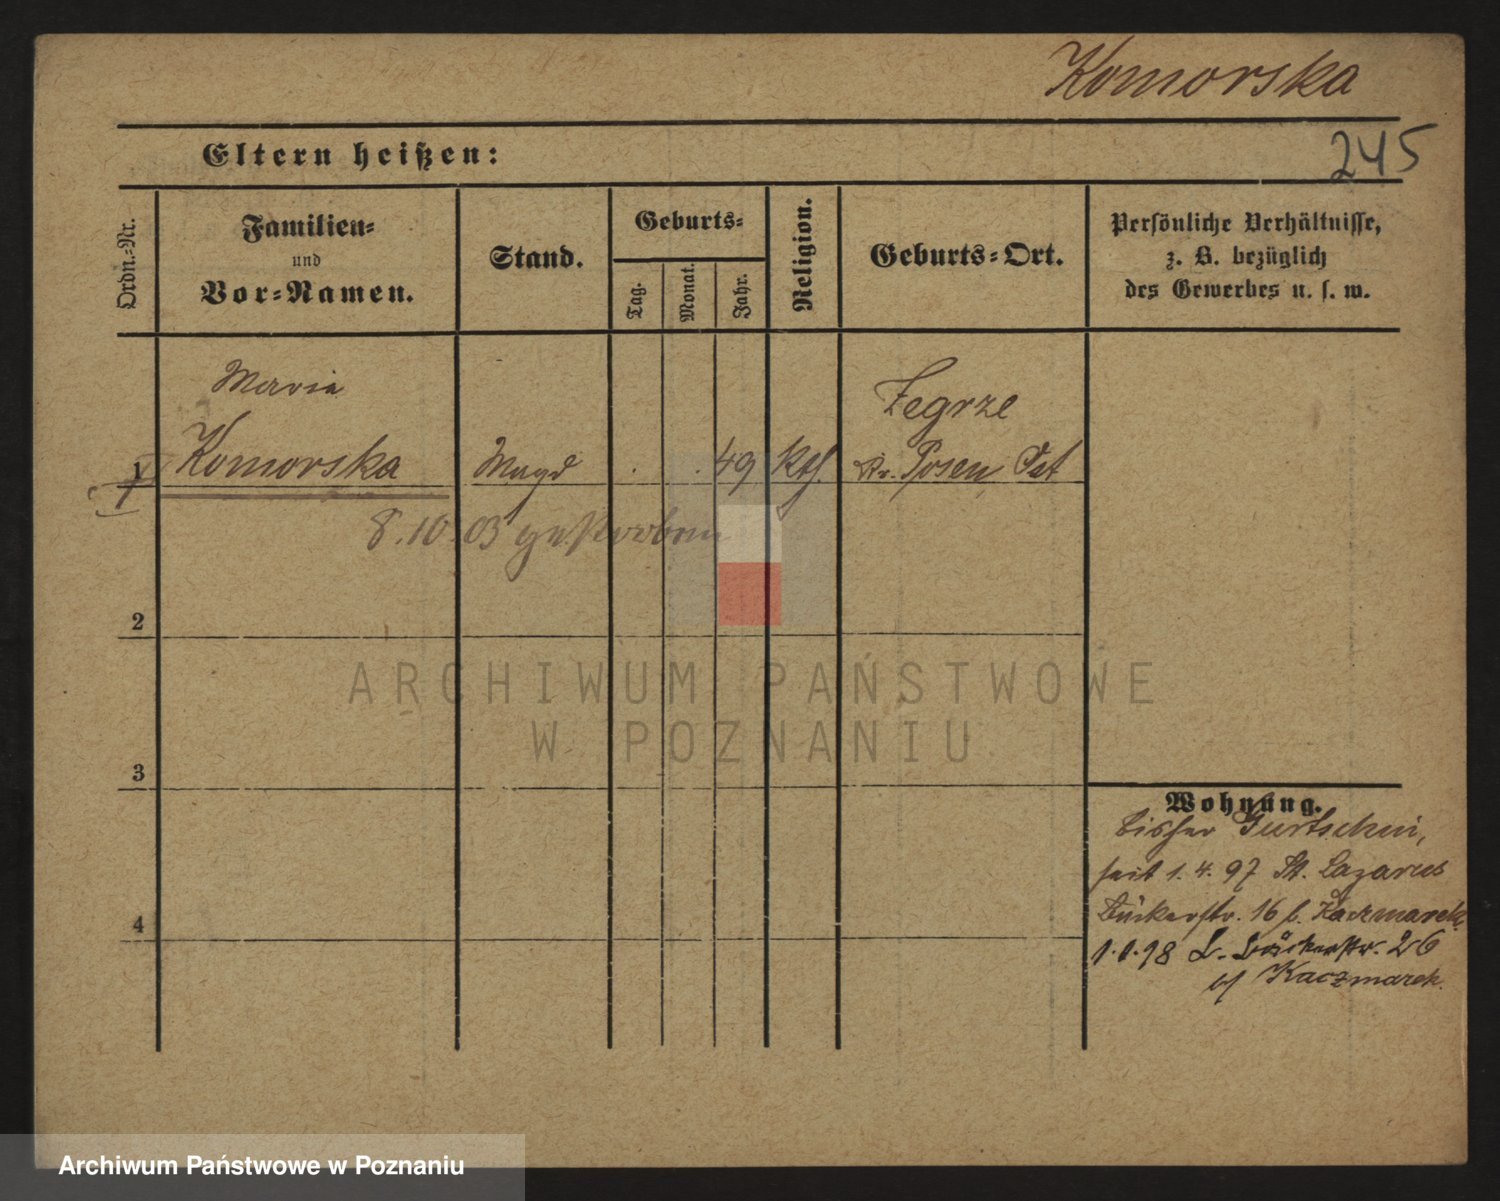 Komorska
245
Eltern heißen:
Ordn.-Nr.
Familien-
und
Vor-Namen.
Stand.
Geburts-
Tag.
Monat.
Jahr.
Religion.
Geburts-Ort.
Persönliche Verhältnisse,
z. B. bezüglich
des Gewerbes u. s. w.
Maria
Zegrze
1 Komorska Magd . . 49 kth. Kr. Posen Ost
1
8.10.03 gestorben
2
3
4
Wohnung.
Bisher Gurtschin,
seit 1. 4. 97 St. Lazarus
Bäckerstr. 16 b. Kaczmarek
1.1.98 L. Bäckerstr. 26
b/ Kaczmarek.
ARCHIWUM PAŃSTWOWE
W POZNANIU
Archiwum Państwowe w Poznaniu